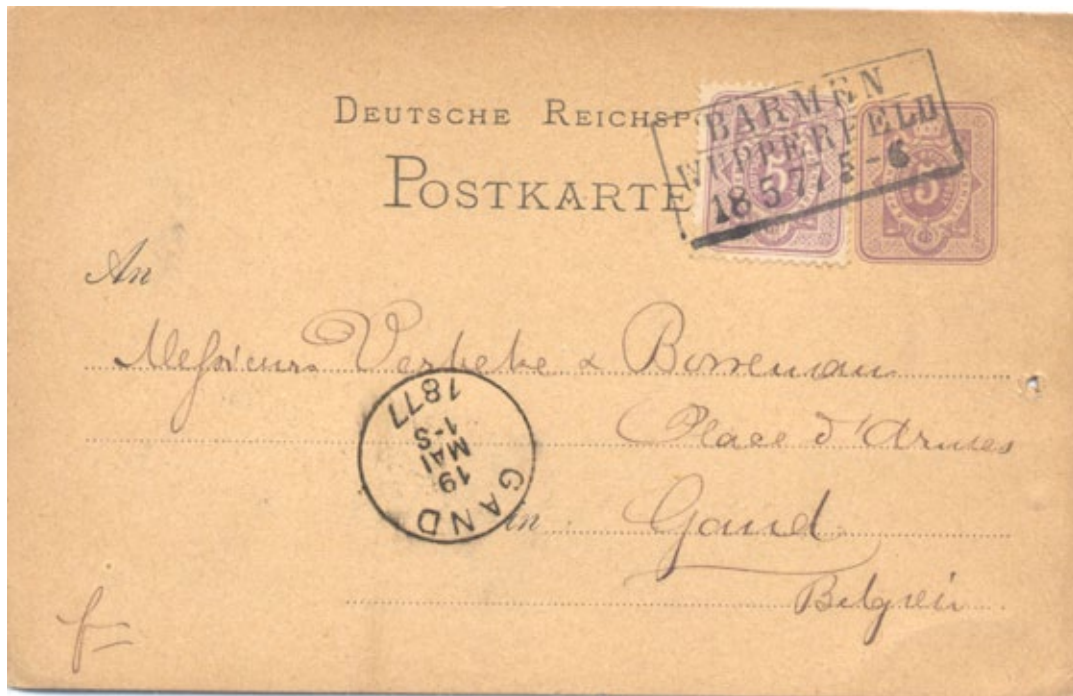 DEUTSCHE REICHSP
POSTKARTE
BARMEN
WUPPERFELD
18 5 77 5-6
5
5
An
Messieurs Verbeke & Borreman
Place d'Armes
in Gand
Belgien
GAND
19
MAI
1-S
1877